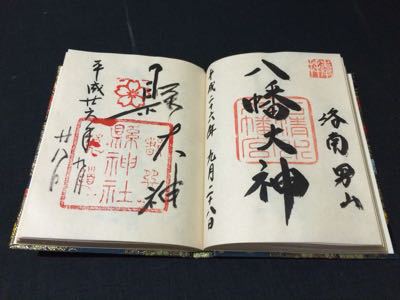 洛南男山
八幡大神
平成二十六年 九月二十八日
縣大神
縣神社
平成廿六年九月
廿八日